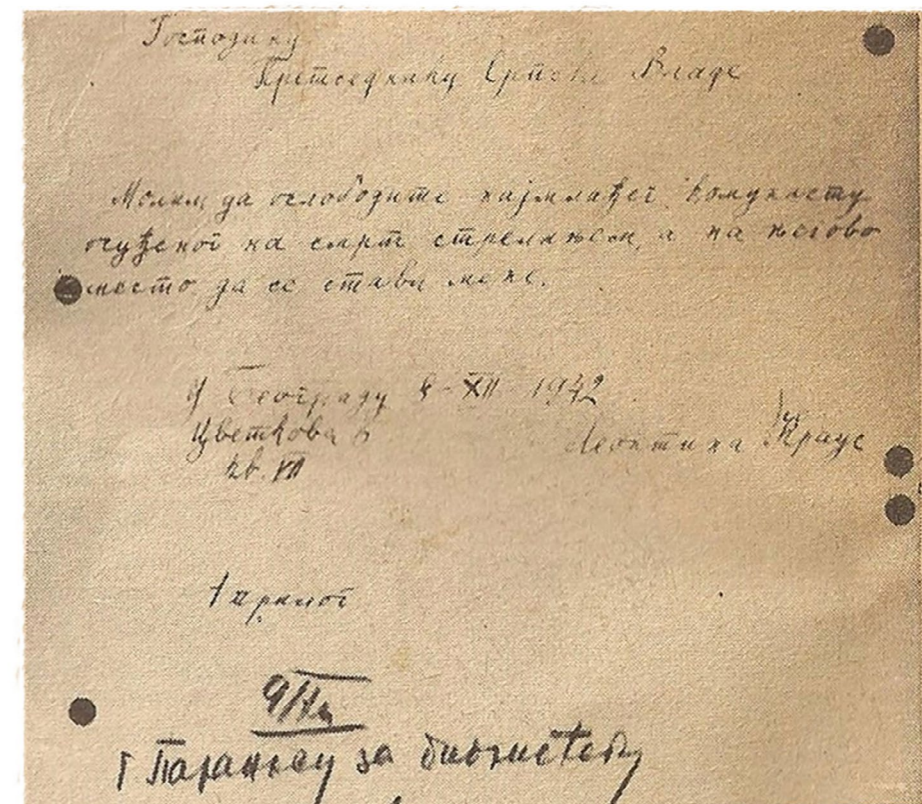 Господину
Претседнику Српске Владе
Молим да ослободите најмлађег комунисту
осуђеног на смрт стрелањем, а на његово
место да се стави мене.
У Београду 8-XII 1942
Цветкова
кв. VII
Леонтина Краус
1 прилог
9/XII
г Параносу за